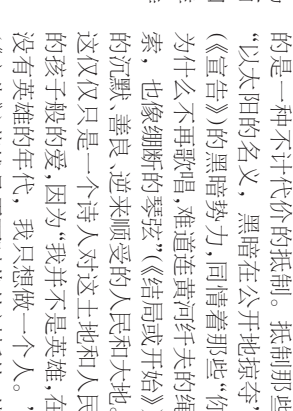 的是一种不计代价的抵制。抵制那些
“以太阳的名义，黑暗在公开地掠夺”
（《宣告》）的黑暗势力，同情着那些“你
为什么不再歌唱，难道连黄河纤夫的绳
索，也像绷断的琴弦”（《结局或开始》）
的沉默、善良、逆来顺受的人民和大地。
这仅仅只是一个诗人对这土地和人民
的孩子般的爱，因为“我并不是英雄，在
没有英雄的年代，我只想做一个人。”